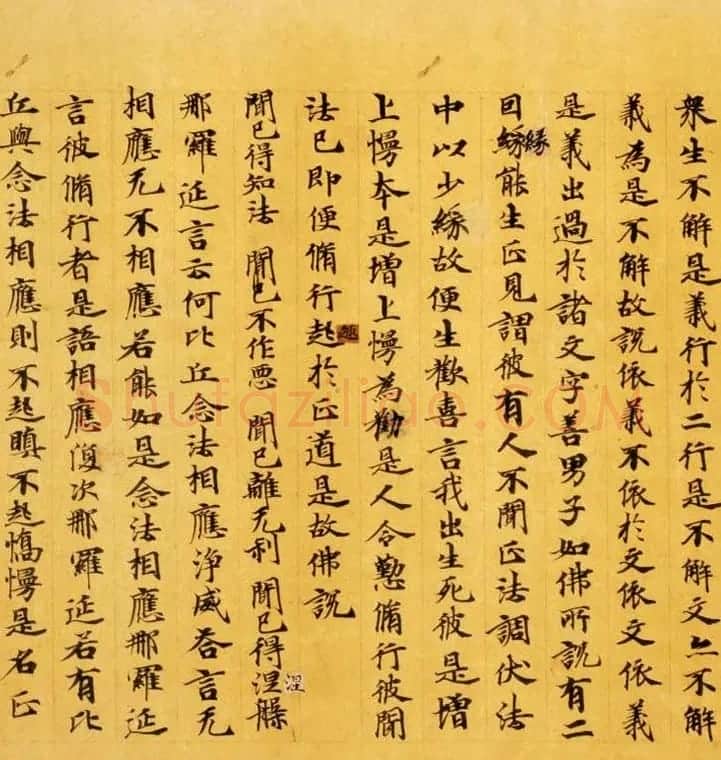 衆生不解是義行於二行是不解文亦不解
義為是不解故說依義不依於文依文依義
是義出過於諸文字善男子如佛所說有二
因緣緣能生正見謂彼有人不聞正法調伏法
中以少緣故便生歡喜言我出生死彼是增
上慢夲是增上慢為勸是人令懃脩行彼聞
法已即便脩行起起於正道是故佛說
聞已得知法 聞已不作惡 聞已離无利 聞已得涅涅槃
那羅延言云何比丘念法相應淨威荅言无
相應无不相應若能如是念法相應那羅延
言彼脩行者是語相應復次那羅延若有比
丘與念法相應則不起瞋不起憍慢是名正
shufaziliao.COM